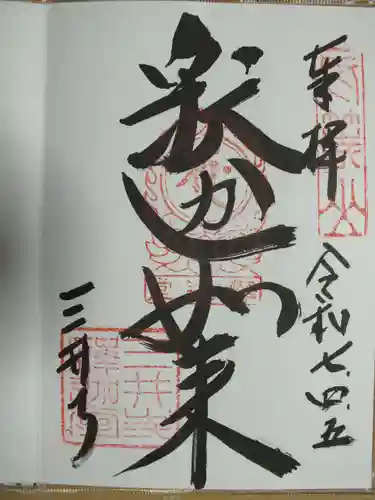 奉拝
令和七、四、五
釈迦如来
三井寺